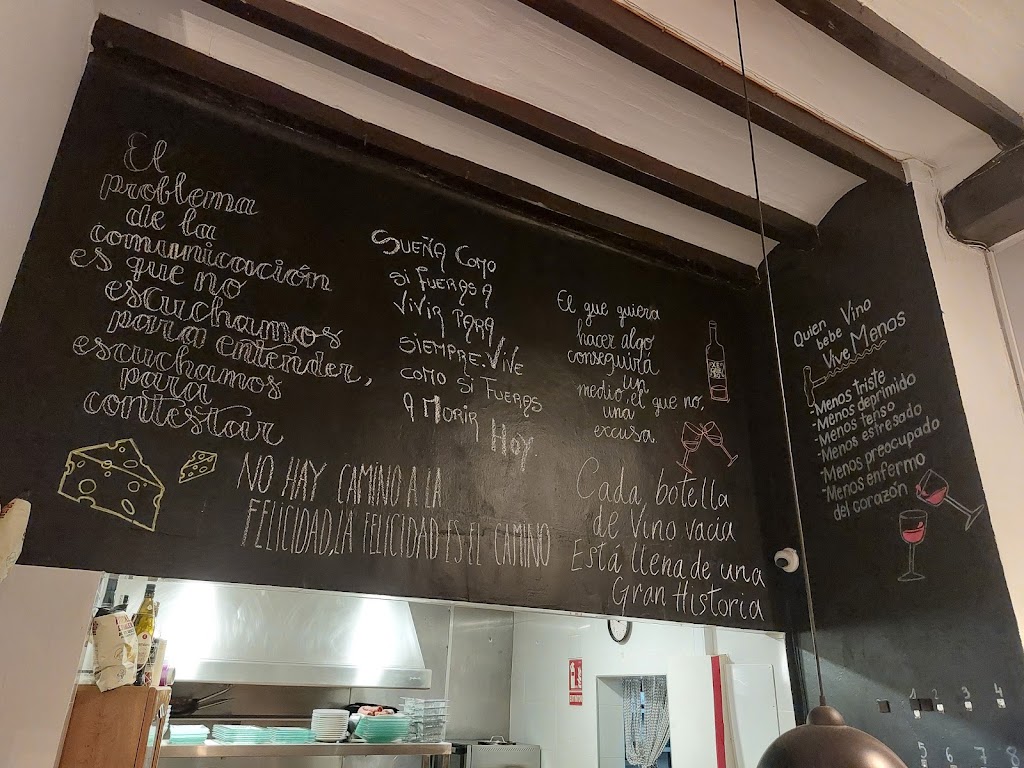 El
problema
de la
comunicación
es que no
escuchamos
para entender,
escuchamos
para
contestar
SUEÑA COMO
SI FUERAS A
VIVIR PARA
SIEMPRE.VIVE
COMO SI FUERAS
A MORIR
HOY.
NO HAY CAMINO A LA
FELICIDAD,LA FELICIDAD ES EL CAMINO
El que quiera
hacer algo
conseguirá
un
medio, el que no,
una
excusa.
Cada botella
de Vino vacia
Está llena de una
Gran Historia
Quien
bebe Vino
Vive Menos
-Menos triste
-Menos deprimido
-Menos Tenso
-Menos estresado
-Menos preocupado
-Menos enfermo
del corazón
1 2 3 4
5 6 7 8